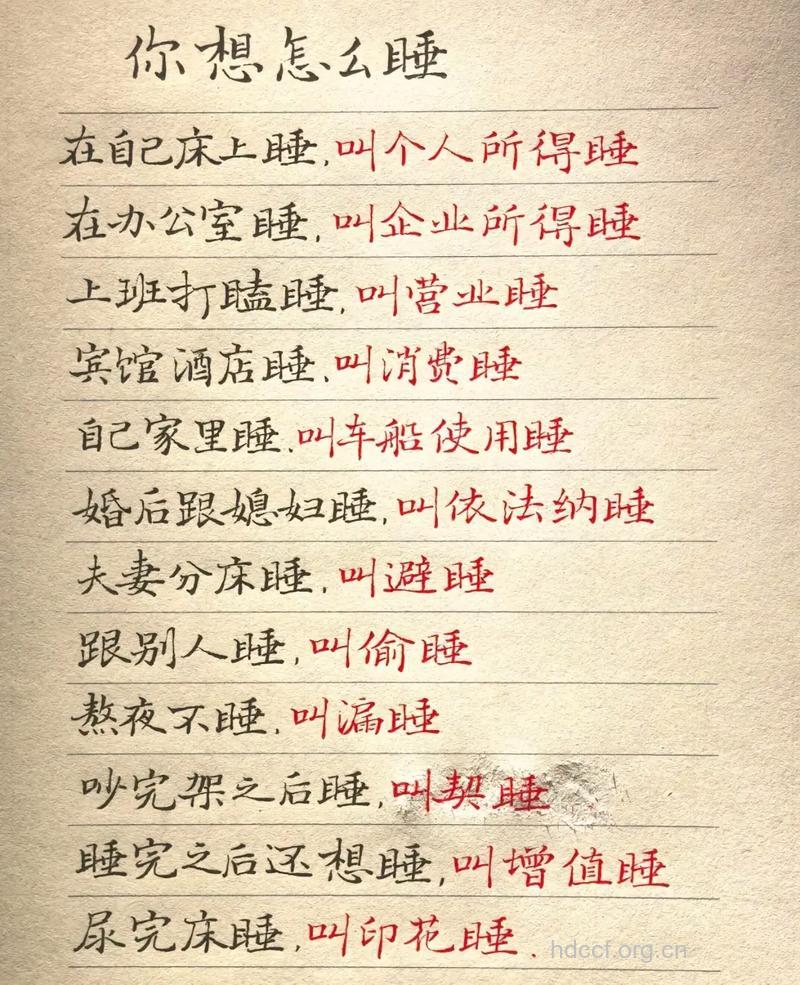 你想怎么睡
在自己床上睡,叫个人所得睡
在办公室睡,叫企业所得睡
上班打瞌睡,叫营业睡
宾馆酒店睡,叫消费睡
自己家里睡,叫车船使用睡
婚后跟媳妇睡,叫依法纳睡
夫妻分床睡,叫避睡
跟别人睡,叫偷睡
熬夜不睡,叫漏睡
吵完架之后睡,叫契睡
睡完之后还想睡,叫增值睡
尿完床睡,叫印花睡.
hdccf.org.cn